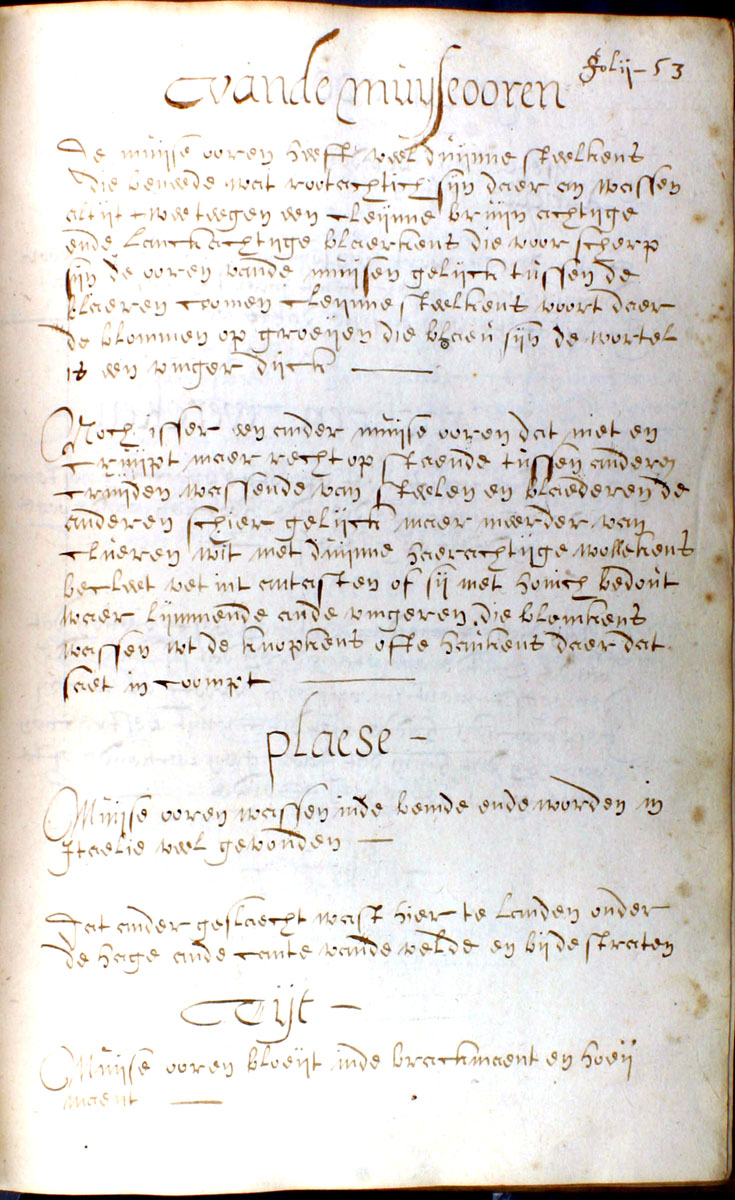 folij - 53
Vande muijseooren
De muijse ooren heeft veel duijnne steelkens
die beneede wat rootachtich sijn daer an wassen
altijt twee tegen een cleijnne bruijn achtige
ende lanckachtige blaerkens die voor scherp
sijn de ooren vande muijsen gelijck tussen de
blaeren coomen cleijnne steelkens voort daer
de blommen op groeijen die blaeu sijn de wortel
is een vinger dijck
Noch isser een ander muijse ooren dat niet en
cruijpt maer recht op staende tussen anderen
cruijden wassende van steelen en blaederen de
anderen schier gelijck maer meerder van
clueren wit met duijnne haerachtige wollekens
becleet vet int antasten of sij met honich bedout
waer lijmmende ande vingeren die blomkens
wassen wt de knopkens ofte hautkens daer dat
saet in coompt
plaese -
Muijse ooren wassen inde beemde ende worden in
Itaelie veel gevonden
Dat ander geslaecht wast hier te landen onder
de hage ande cante vande velde en bij de straten
Tijt -
Muijse ooren bloeijt inde brackmaent en hoeij
maent